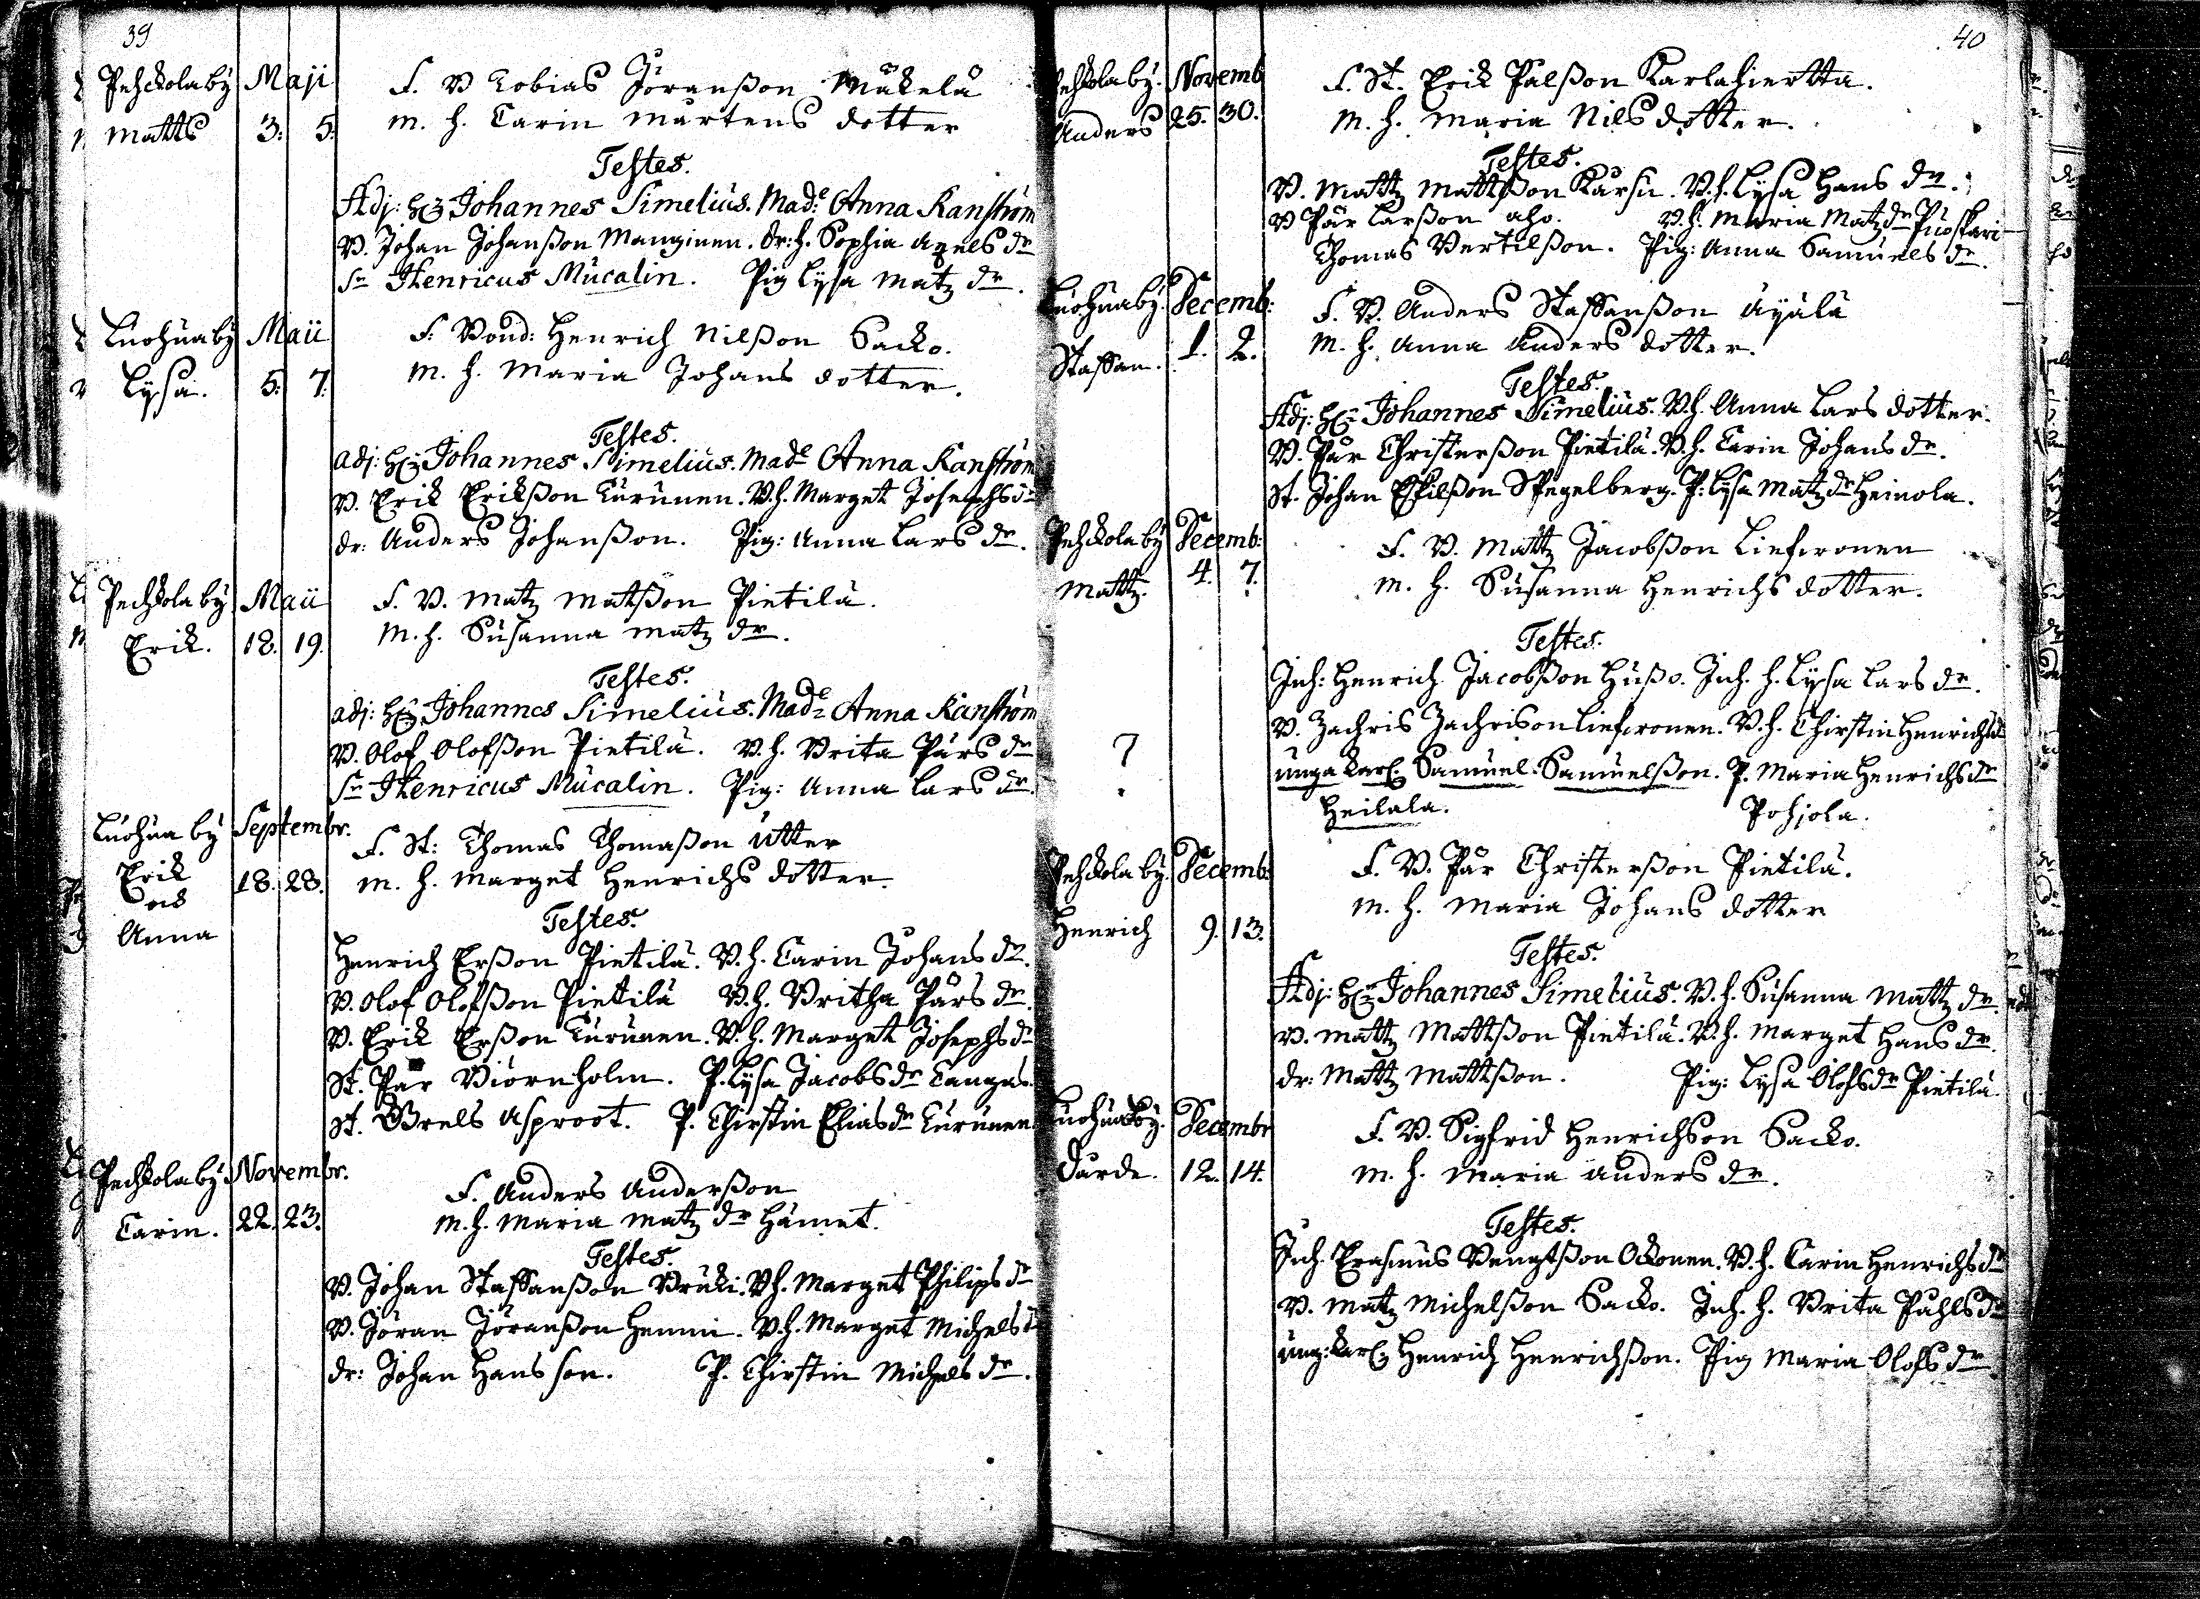 39
Pehckola by Maji F. B Tobias Jöranßon Mäkelä
Matts 3. 5. M. h. Carin Mårtens dotter
Testes.
Adj: H:r Johannes Simelius. Mad:e Anna Kanström
B. Johan Johanßon Manginen. dr: h. Sophia Axels d:r
S:r Henricus Mucalin. Pig Lysa Matz d:r.
Luohua by Maii F. Bond: Henrich Nilßon Sacko.
Lysa. 5. 7. M. h. Maria Johans dotter.
Testes.
adj: H:r Johannes Simelius. Mad:e Anna Kanström
B. Erik Erikßon Turunen. B. h. Marget Josephs d:r
dr: Anders Johanßon. Pig: Anna Lars d:r.
Pehckola by Maii F. B. Matz Matßon Pietilä.
Erik. 18. 19. M. h. Susanna Matz d:r.
Testes.
adj: H:r Johannes Simelius. Mad:e Anna Kanström
B. Olof Olofßon Pietilä. B. h. Brita Pärs d:r
S:r Henricus Mucalin. Pig: Anna Lars d:r.
Luohua by Septembr. F. St: Thomas Thomaßon Utter
Erik och 18. 28. M. h. Marget Henrichs dotter.
Anna
Testes.
Henrich Erßon Pietilä. B. h. Carin Johans d:r.
B. Olof Olofßon Pietilä B. h. Britha Pärs d:r.
B. Erik Erßon Turunen. B. h. Marget Josephs d:r
St. Pär Biörnholm. P. Lysa Jacobs d:r Cangas.
St. Grels Asproot. P. Chirstin Elias d:r Turunen
Pehckola by. Novembr. F. Anders Anderßon
Carin. 22. 23. M. h. Maria Matz d:r Hämet.
Testes.
B. Johan Staffanßon Bruki. B h. Marget Philips d:r
B. Jöran Jöranßon Hemmi. B. h. Marget Michels d
dr: Johan Hans son. P. Chirstin Michels d:r.
40
Pehckola by. Novemb F. St. Erik Pålßon Karlahiertta.
Anders 25. 30. M. h. Maria Nils dotter.
Testes.
B. Mattz Mattßon Karsu. B. h. Lysa Hans d:r.
B Pär Larßon aho. B. h. Maria Matz d:r Puoskari
Thomas Bertilßon. Pig: Anna Samuels d:r.
Luohua by. Decemb: F. B. Anders Staffanßon Äyälä
Staffan. 1. 2. M. h. Anna Anders dotter.
Testes.
Adj: H:r Johannes Simelius. B. h. Anna Lars dotter.
B. Pär Christerßon Pietilä. B. h. Carin Johans d:r.
St. Johan Eskilßon Spegelberg. P: Lysa Matz d:r Heinola.
Pehckola by Decemb: F. B. Mattz Jacobßon
Mattz. 4. 7. M. h. Susanna Henrichs dotter.
Testes.
Inh: Henrich Jacobßon Hußo. Inh. h. Lysa Lars d:r.
B. Zachris Zachrison B. h. Chirstin Henrichs d
? unga karl: Samuel Samuelßon. P. Maria Henrichs d:r
Heilala. Pohjola.
Pehckola by. Decemb: F. B. Pär Christerßon Pietilä.
Henrich 9. 13. M. h. Maria Johans dotter
Testes.
Adj: H:r Johannes Simelius. B. h. Susanna Mattz d:r.
B. Mattz Mattßon Pietilä. B. h. Marget Hans d:r.
dr: Mattz Mattßon. Pig: Lysa Olofs d:r Pietilä.
Luohua by. Decembr F. B. Sigfrid Henrichson Sacko.
12. 14. M. h. Maria Anders d:r.
Testes.
Inh. Erasmus Bengtßon Ockonen. B. h. Carin Henrichs d:r
B. Matz Michelßon Sacko. Inh. h. Brita Påhls d:r
ung: karl: Henrich Henrichßon. Pig Maria Olofs d:r